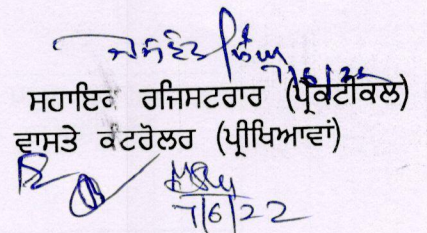 7/6/22
ਸਹਾਇਕ ਰਜਿਸਟਰਾਰ (ਪ੍ਰੈਕਟੀਕਲ)
ਵਾਸਤੇ ਕੰਟਰੋਲਰ (ਪ੍ਰੀਖਿਆਵਾਂ)
7/6/22